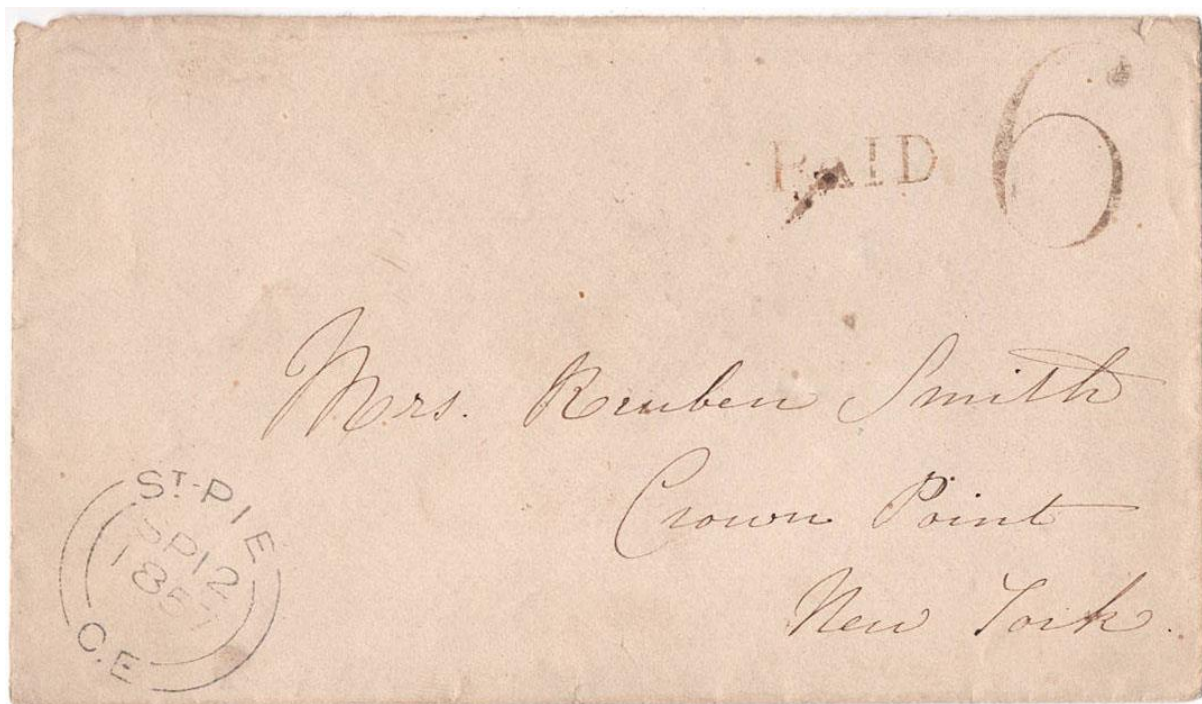 PAID 6
Mrs. Reuben Smith
Crown Point
New York.
ST-PIE
SP 12
1857
C.E